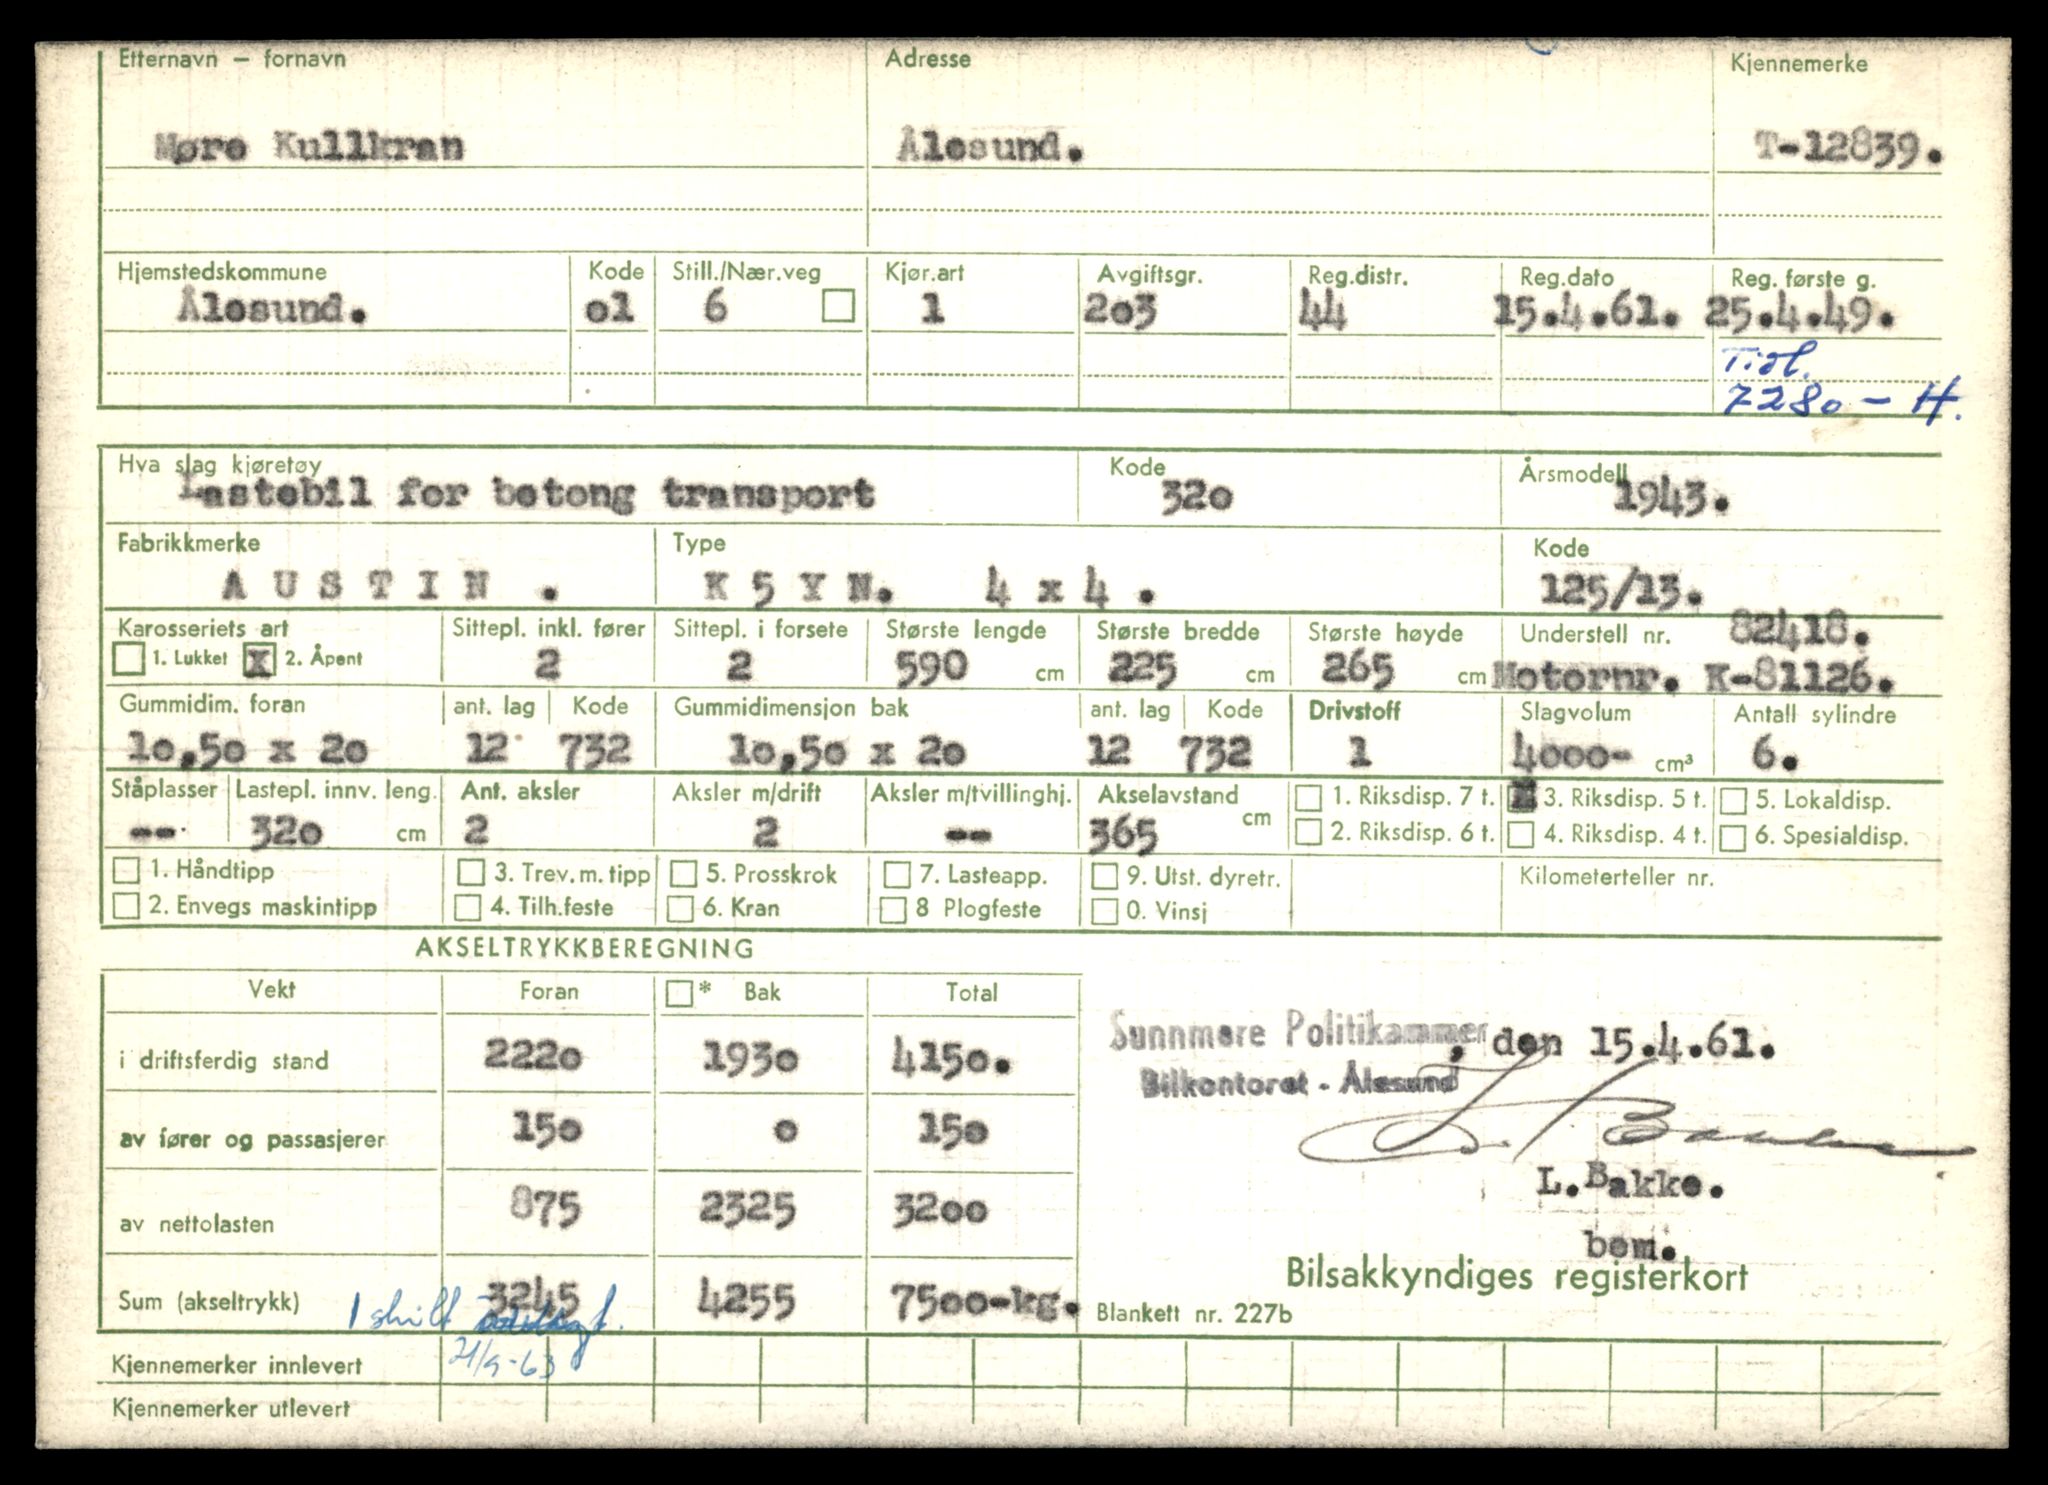 Etternavn – fornavn Adresse Kjennemerke
Møre Kullkran Ålesund. T-12839.
Hjemstedskommune Kode Still./Nær.veg Kjør.art Avgiftsgr. Reg.distr. Reg.dato Reg. første g.
Ålesund. o1 6 1 2o3 44 15.4.61. 25.4.49.
Tidl.
7280 - H.
Hva slag kjøretøy Kode Årsmodell
Lastebil for betong transport 32o 1943.
Fabrikkmerke Type Kode
A U S T I N . K 5 Y N. 4 x 4 . 125/13.
Karosseriets art Sittepl. inkl. fører Sittepl. i forsete Største lengde Største bredde Største høyde Understell nr. 82418.
1. Lukket X 2. Åpent 2 2 590 cm 225 cm 265 cm Motornr. K-81126.
Gummidim. foran ant. lag Kode Gummidimensjon bak ant. lag Kode Drivstoff Slagvolum Antall sylindre
1o,5o x 2o 12 732 1o,5o x 2o 12 732 1 4000- cm³ 6.
Ståplasser Lastepl. innv. leng. Ant. aksler Aksler m/drift Aksler m/tvillinghj. Akselavstand 1. Riksdisp. 7 t. X 3. Riksdisp. 5 t. 5. Lokaldisp.
-- 32o cm 2 2 -- 365 cm 2. Riksdisp. 6 t. 4. Riksdisp. 4 t. 6. Spesialdisp.
1. Håndtipp 3. Trev. m. tipp 5. Prosskrok 7. Lasteapp. 9. Utst. dyretr. Kilometerteller nr.
2. Envegs maskintipp 4. Tilh.feste 6. Kran 8 Plogfeste 0. Vinsj
AKSELTRYKKBEREGNING
Vekt Foran * Bak Total
i driftsferdig stand 222o 193o 415o.
Sunnmøre Politikammer, den 15.4.61.
Bilkontoret - Ålesund
av fører og passasjerer 15o o 15o
L. Bakke
L.Bakke.
av nettolasten 875 2325 32oo
bem.
Bilsakkyndiges registerkort
Sum (akseltrykk) 3245 4255 75oo-kg.
Blankett nr. 227b
1 skilt
Kjennemerker innlevert 21/9-63
Kjennemerker utlevert